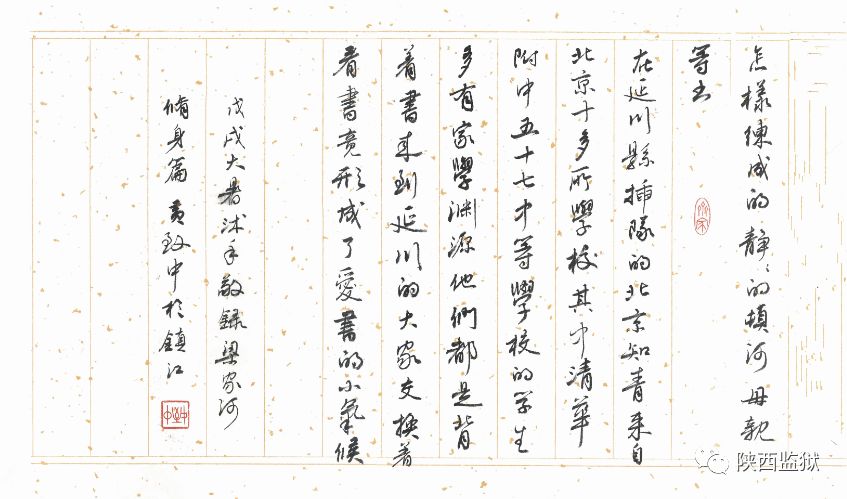 怎樣練成的靜〻的頓河母親
等书
在延川縣插隊的北京知青来自
北京十多所學校其中清華
附中五十七中等學校的学生
多有家學渊源他們都是背
着書来到延川的大家交换着
看書竟形成了愛書的小氣候
戊戌大暑沐手敬録梁家河
脩身篇 黄致中於鎮江
陕西监狱